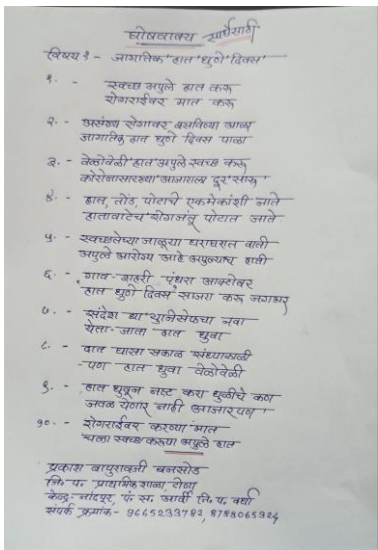 घोषवाक्य स्पर्धेसाठी
विषय :- जागतिक हात धुणे दिवस
१. - स्वच्छ अपुले हात करू
रोगराईवर मात करू
२. - असंख्य रोगांवर बसविण्या आळा
जागतिक हात धुणे दिवस पाळा
३. - वेळोवेळी हात अपुले स्वच्छ करू
कोरोनासारख्या आजाराला दूर सारू
४. - हात, तोंड, पोटाचे एकमेकांशी नाते
हातावाटेच रोगजंतू पोटात जाते
५. - स्वच्छतेच्या जाळूया घराघरात वाती
अपुले आरोग्य आहे अपुल्याच हाती
६. - गाव-शहरी पंधरा आक्टोबर
हात धुणे दिवस साजरा करू जगभर
७. - संदेश द्या युनिसेफचा नवा
येता-जाता हात धुवा
८. - दात घासा सकाळ संध्याकाळी
पण हात धुवा वेळोवेळी
९. - हात धुवून नष्ट करा धुळीचे कण
जवळ येणार नाही आजारपण
१०. - रोगराईवर करण्या मात
चला स्वच्छ करूया अपुले हात
प्रकाश बापुरावजी बनसोड
जि. प. प्राथमिक शाळा, टोणा
केन्द्र- नांदपूर, पं. स. आर्वी जि. प. वर्धा
संपर्क क्रमांक- 9665233782, 8788065924